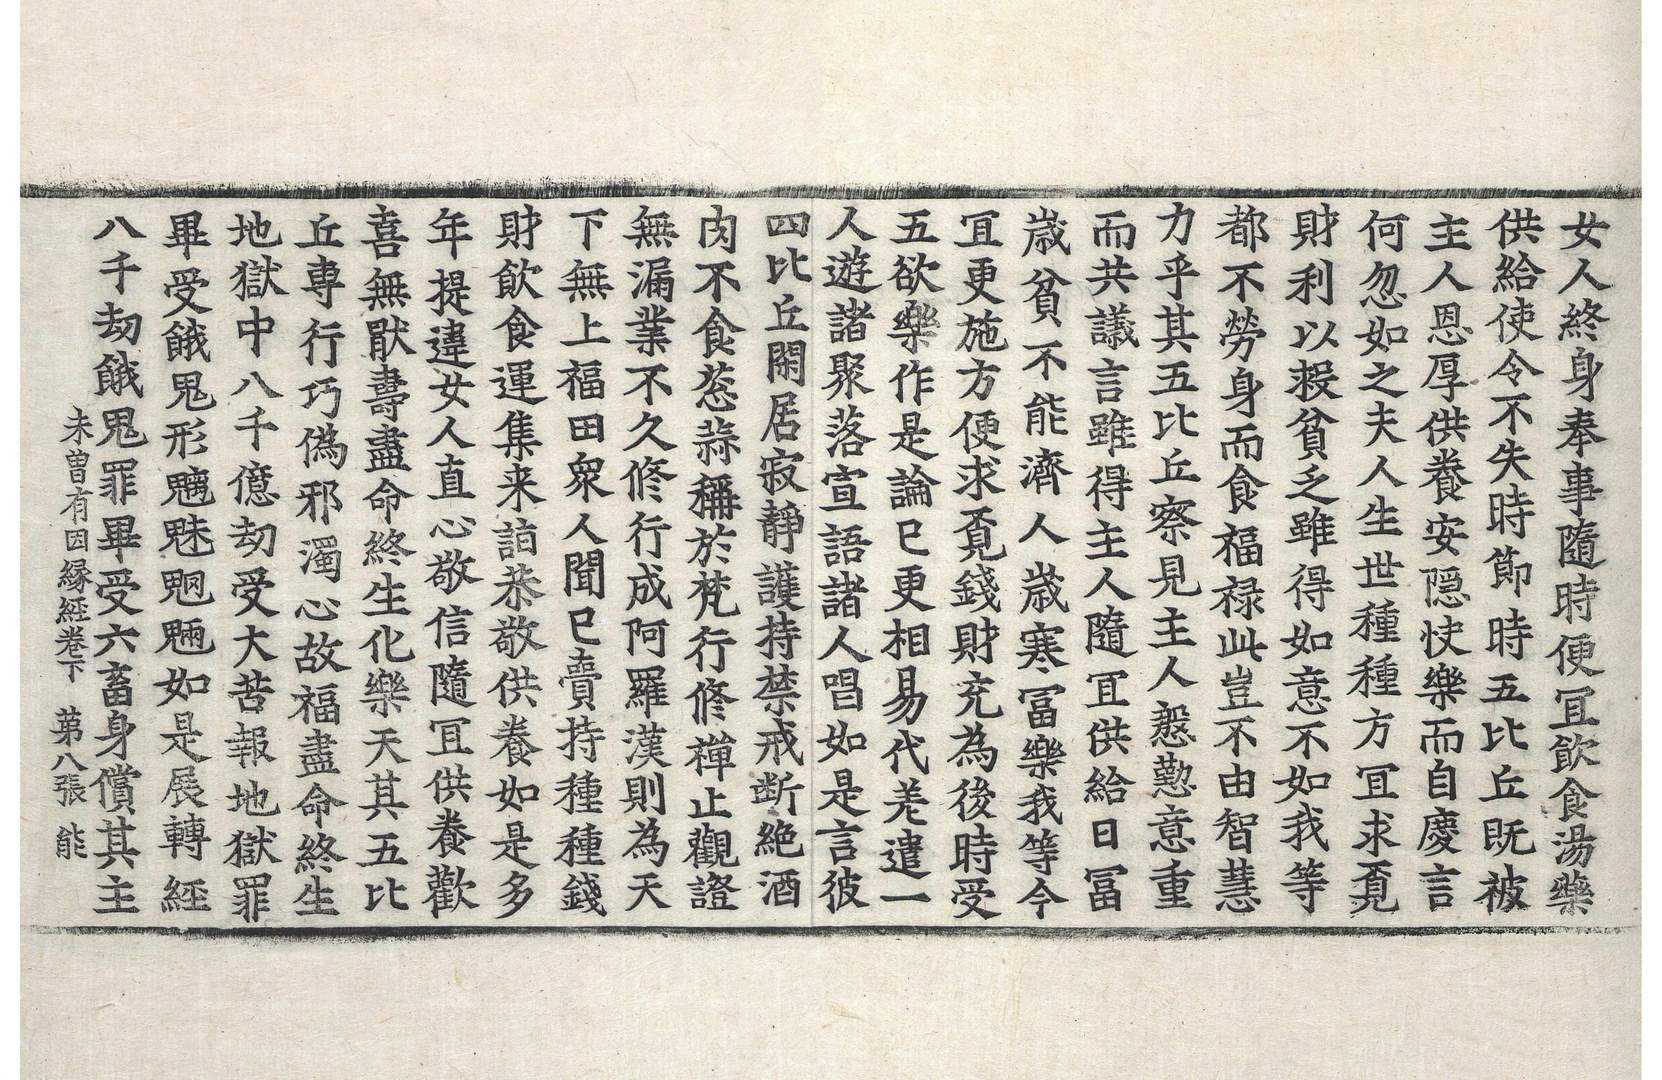 女人終身奉事隨時便冝飮食湯藥
供給使令不失時節時五比丘旣被
主人恩厚供養安隱快樂而自慶言
何忽如之夫人生世種種方冝求覔
財利以救貧乏雖得如意不如我等
都不勞身而食福禄此豈不由智慧
力乎其五比丘察見主人慇懃意重
而共議言雖得主人隨冝供給日冨
歲貧不能濟人歲寒冨樂我等今
冝更施方便求覔錢財充為後時受
五欲樂作是論已更相易代差遣一
人遊諸聚落宣語諸人唱如是言彼
四比丘閑居寂靜護持禁戒断絶酒
肉不食葱蒜稱於梵行修禪止觀證
無漏業不久修行成阿羅漢則為天
下無上福田衆人聞已賣持種種錢
財飲食運集来詣恭敬供養如是多
年提違女人直心敬信隨冝供養歡
喜無猒壽盡命終生化樂天其五比
丘專行巧偽邪濁心故福盡命終生
地獄中八千億劫受大苦報地獄罪
畢受餓鬼形魑魅魍魎如是展轉經
八千劫餓鬼罪畢受六畜身償其主
未曾有因縁經卷下 第八張 能